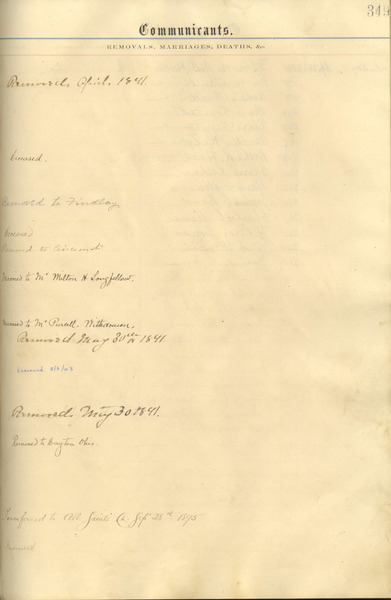 349
Communicants.
REMOVALS, MARRIAGES, DEATHS, &c.
Removed April 1841.
Deceased.
Removed to Findlay
Deceased
Removed to Cincinnati
Married to Mr Milton H Longfellow.
Married to Mr Purcell. Withdrawn.
Removed May 30th 1841.
Removed May 30th 1841.
Removed to Dayton Ohio.
Transferred to All Saints Ch Sept 28th 1895